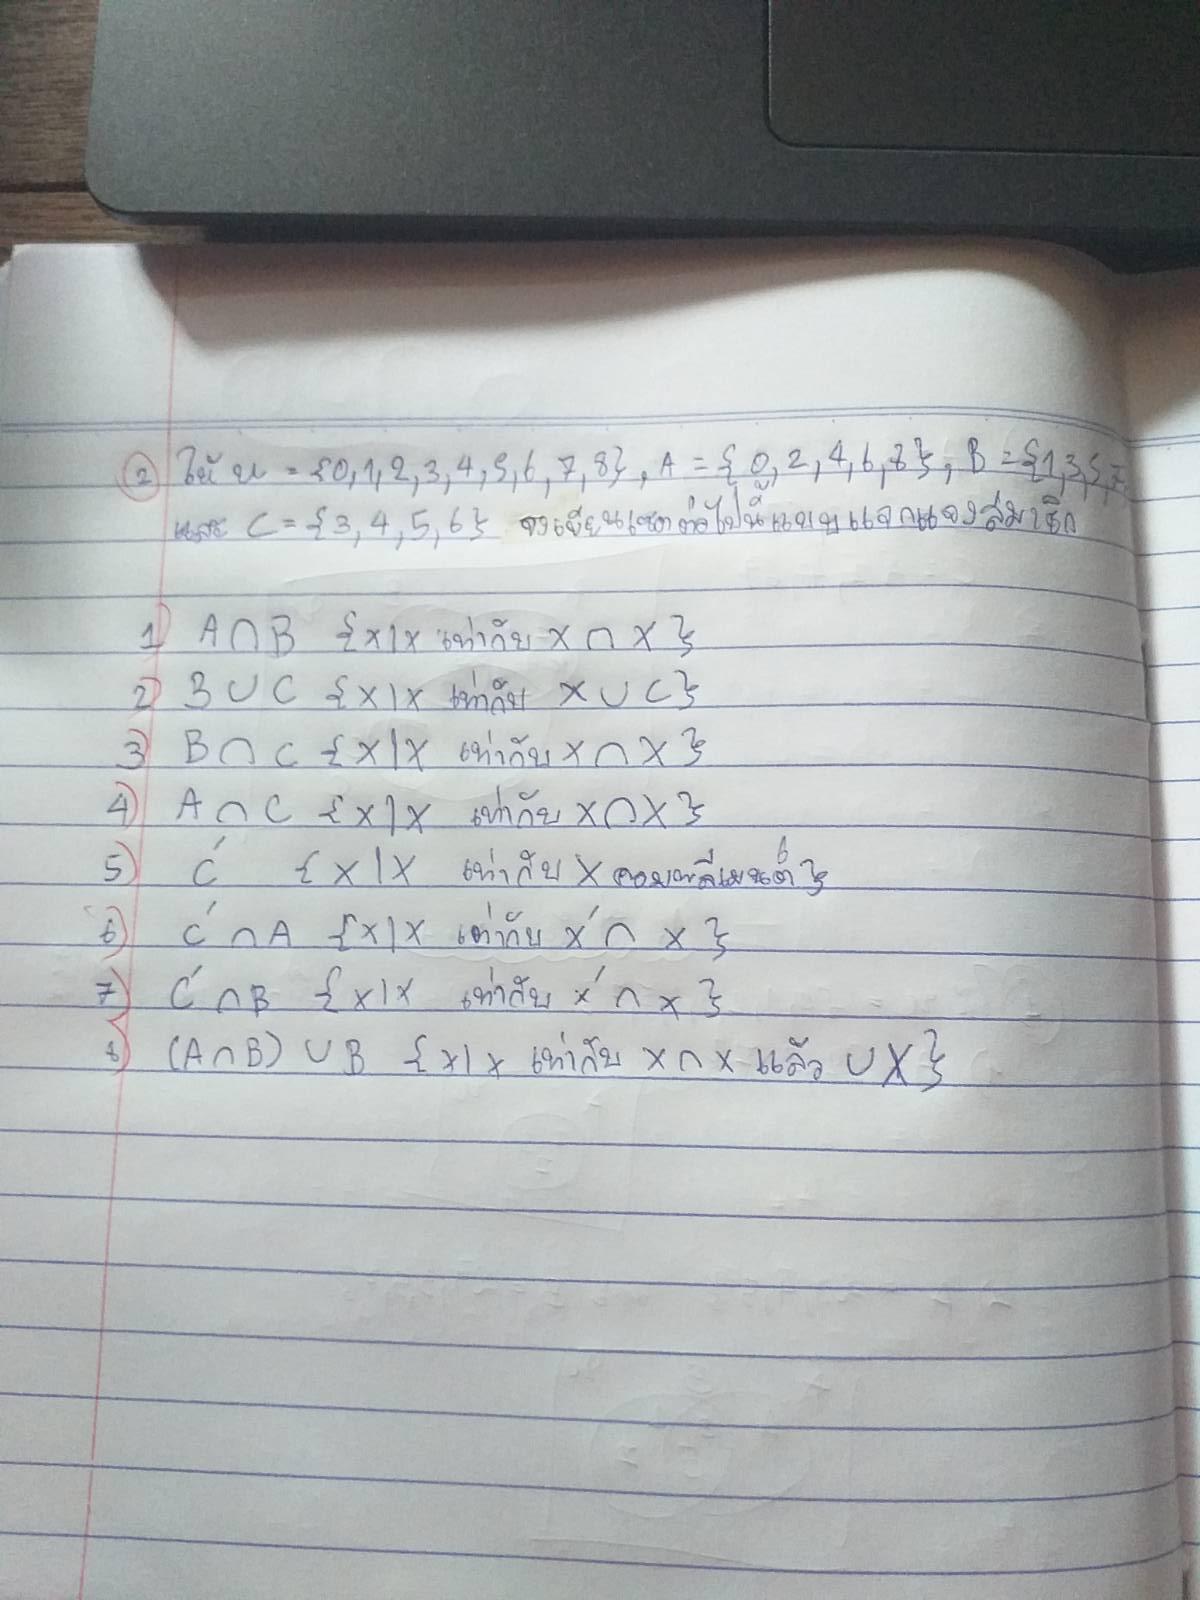 ② ให้ U = {0,1,2,3,4,5,6,7,8}, A = {0,2,4,6,8}, B = {1,3,5,7
และ C = {3,4,5,6} จงเขียนเซตต่อไปนี้แบบแจกแจงสมาชิก
1) A∩B {x|x เท่ากับ x ∩ x}
2) B∪C {x|x เท่ากับ x∪C}
3) B∩C {x|x เท่ากับ x∩x}
4) A∩C {x|x เท่ากับ x∩x}
5) C' {x|x เท่ากับ x คอมพลีเมนต์}
6) C'∩A {x|x เท่ากับ x'∩ x}
7) C'∩B {x|x เท่ากับ x'∩ x}
8) (A∩B) ∪B {x|x เท่ากับ x∩x แล้ว ∪X}